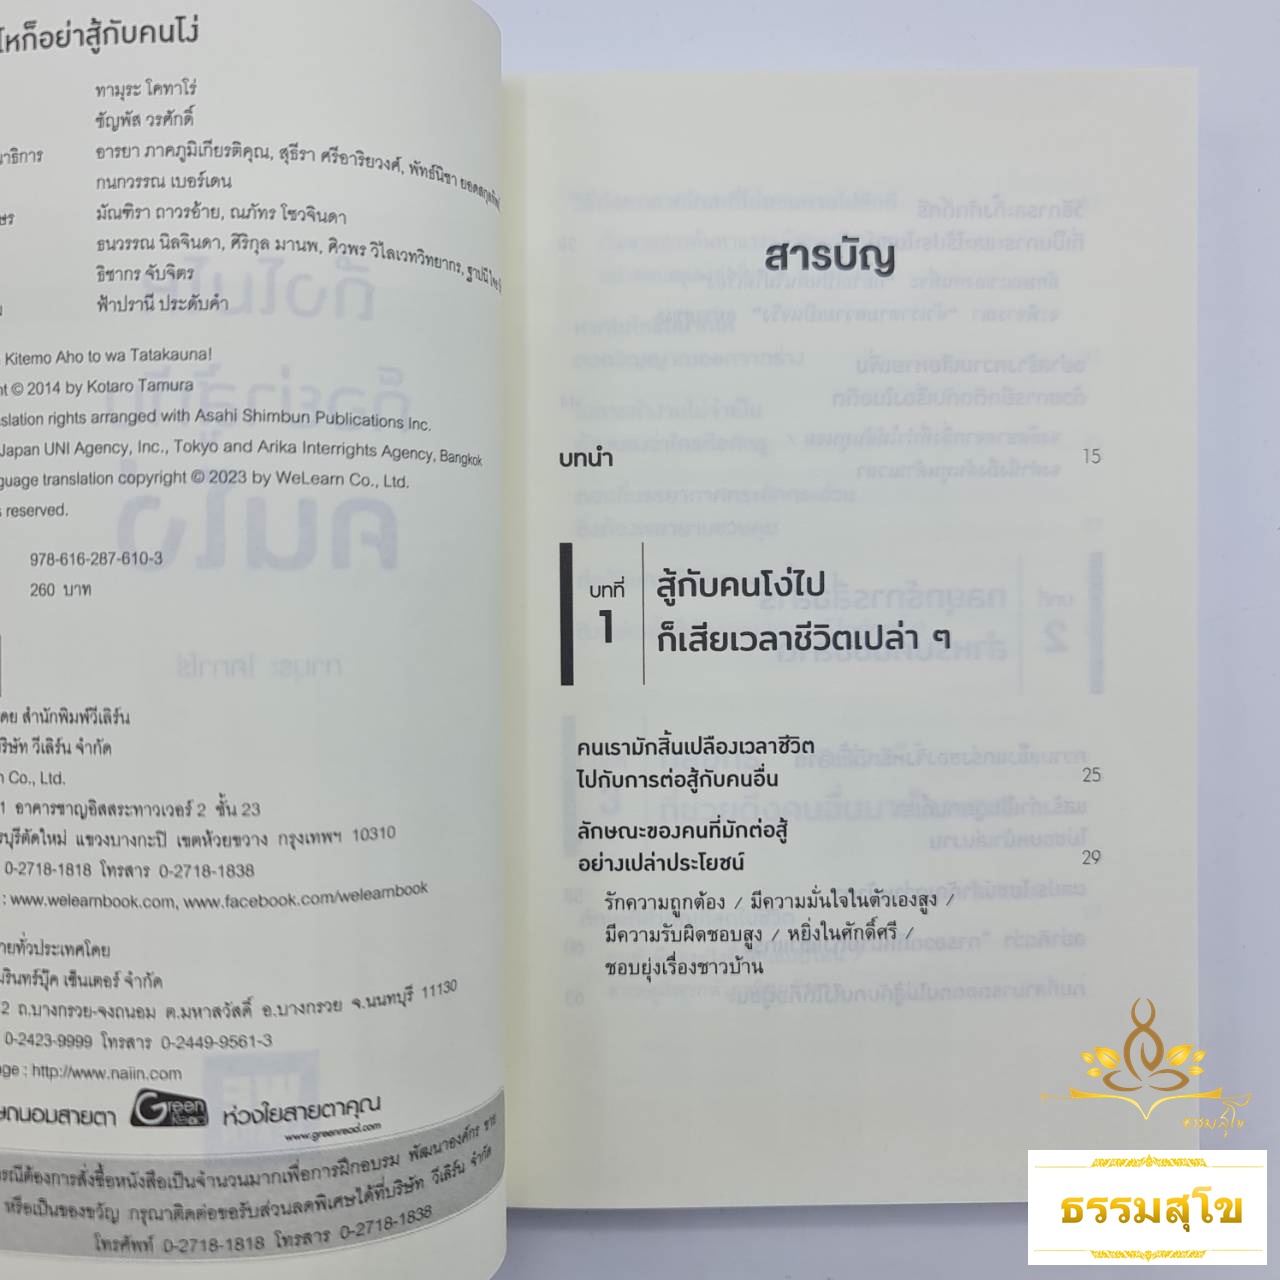 ไหก็อย่าสู้กับคนโง่
ทามุระ โคทาโร่
ชัญพัส วรศักดิ์
าธิการ อารยา ภาคภูมิเกียรติคุณ, สุธีรา ศรีอาริยวงศ์, พัทธ์นิชา
กนกวรรณ เบอร์เดน
ษร มัณฑิรา ถาวรอ้าย, ณภัทร โชวจินดา
ธนวรรณ นิลจินดา, ศิริกุล มานพ, ศิวพร วิไลเวทวิทยากร,
ธิชากร จับจิตร
ฟ้าปรานี ประดับคำ
Kitemo Aho to wa Tatakauna!
ht © 2014 by Kotaro Tamura
nslation rights arranged with Asahi Shimbun Publications Inc.
Japan UNI Agency, Inc., Tokyo and Arika Interrights Agency, Bangkok
guage translation copyright © 2023 by WeLearn Co., Ltd.
s reserved.
978-616-287-610-3
260 บาท
ดย สำนักพิมพ์วีเลิร์น
ริษัท วีเลิร์น จำกัด
n Co., Ltd.
1 อาคารชาญอิสสระทาวเวอร์ 2 ชั้น 23
รบุรีตัดใหม่ แขวงบางกะปิ เขตห้วยขวาง กรุงเทพฯ 10310
0-2718-1818 โทรสาร 0-2718-1838
: www.welearnbook.com, www.facebook.com/welearnbook
ายทั่วประเทศโดย
มรินทร์บุ๊ค เซ็นเตอร์ จำกัด
2 ถ.บางกรวย-จงถนอม ต.มหาสวัสดิ์ อ.บางกรวย จ.นนทบุรี 11130
0-2423-9999 โทรสาร 0-2449-9561-3
age : http://www.naiin.com
ษถนอมสายตา Green Read ห่วงใยสายตาคุณ
www.greenread.com
รณีต้องการสั่งซื้อหนังสือเป็นจำนวนมากเพื่อการฝึกอบรม พัฒนาองค์กร ขาย
หรือเป็นของขวัญ กรุณาติดต่อขอรับส่วนลดพิเศษได้ที่บริษัท วีเลิร์น จำกัด
โทรศัพท์ 0-2718-1818 โทรสาร 0-2718-1838
สารบัญ
บทนำ 15
บทที่ 1
สู้กับคนโง่ไป
ก็เสียเวลาชีวิตเปล่า ๆ
คนเรามักสิ้นเปลืองเวลาชีวิต
ไปกับการต่อสู้กับคนอื่น 25
ลักษณะของคนที่มักต่อสู้
อย่างเปล่าประโยชน์ 29
รักความถูกต้อง / มีความมั่นใจในตัวเองสูง /
มีความรับผิดชอบสูง / หยิ่งในศักดิ์ศรี /
ชอบยุ่งเรื่องชาวบ้าน
ธรรมสุโข
ธรรมสุโข